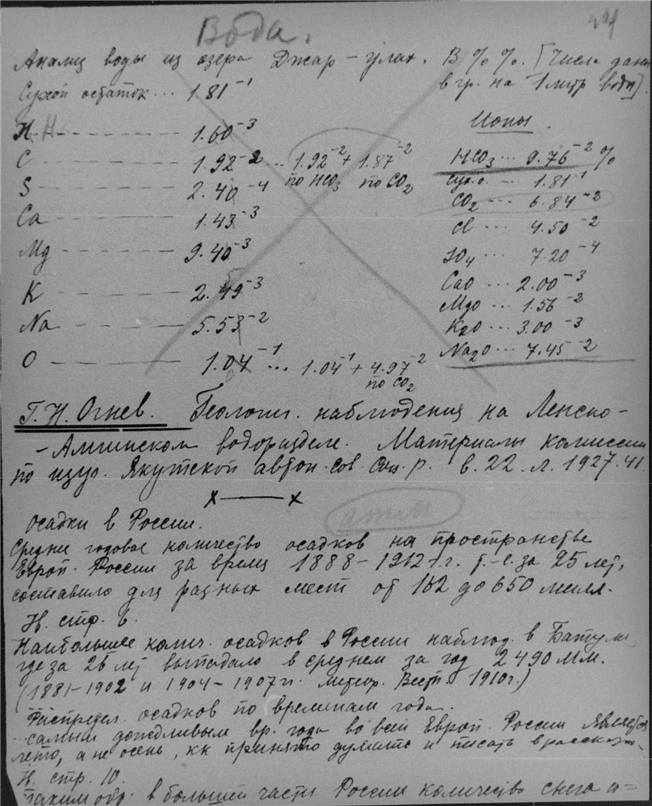 Вода.
Анализ воды из озера Джар-улах. В %%. [Числа даны
в гр. на 1 литр воды].
Сухой остаток ... 1.81⁻¹
H ----- 1.60⁻³
C ----- 1.92⁻² ... 1.92⁻² + 1.87⁻²
по HCO₃ по CO₂
S ----- 2.40⁻⁴
Ca ----- 1.43⁻³
Mg ----- 9.40⁻³
K ----- 2.49⁻³
Na ----- 5.53⁻²
O ----- 1.04⁻¹ ... 1.04⁻¹ + 4.97⁻²
по CO₂
Ионы.
HCO₃ ... 9.76⁻² %
Сух.о. ... 1.81⁻¹
CO₂ ... 6.84⁻²
Cl ... 4.50⁻²
SO₄ ... 7.20⁻⁴
CaO ... 2.00⁻³
MgO ... 1.56⁻²
K₂O ... 3.00⁻³
Na₂O ... 7.45⁻²
Г.Н. Огнев. Геологич. наблюдения на Ленско-
-Амгинском водоразделе. Материалы комиссии
по изуч. Якутской автон. сов. соц. р. в. 22. Л. 1927. 41
x—x
осадки в России.
Среднее годовое количество осадков на пространстве
Европ. России за время 1888-1912 г.г. т.-е. за 25 лет,
составило для разных мест от 162 до 650 милл.
Н. стр. 6.
Наибольшее колич. осадков в России наблюд. в Батуме,
где за 26 лет выпадало в среднем за год 2490 мм.
(1881-1902 и 1904-1907 гг. Метеор. Вестн. 1910 г.)
Распредел. осадков по временам года.
самым дождливым вр. года во всей Европ. России является
лето, а не осень, кк принято думать и писать в
Н. стр. 10.
Таким обр. в большей части России количество снега